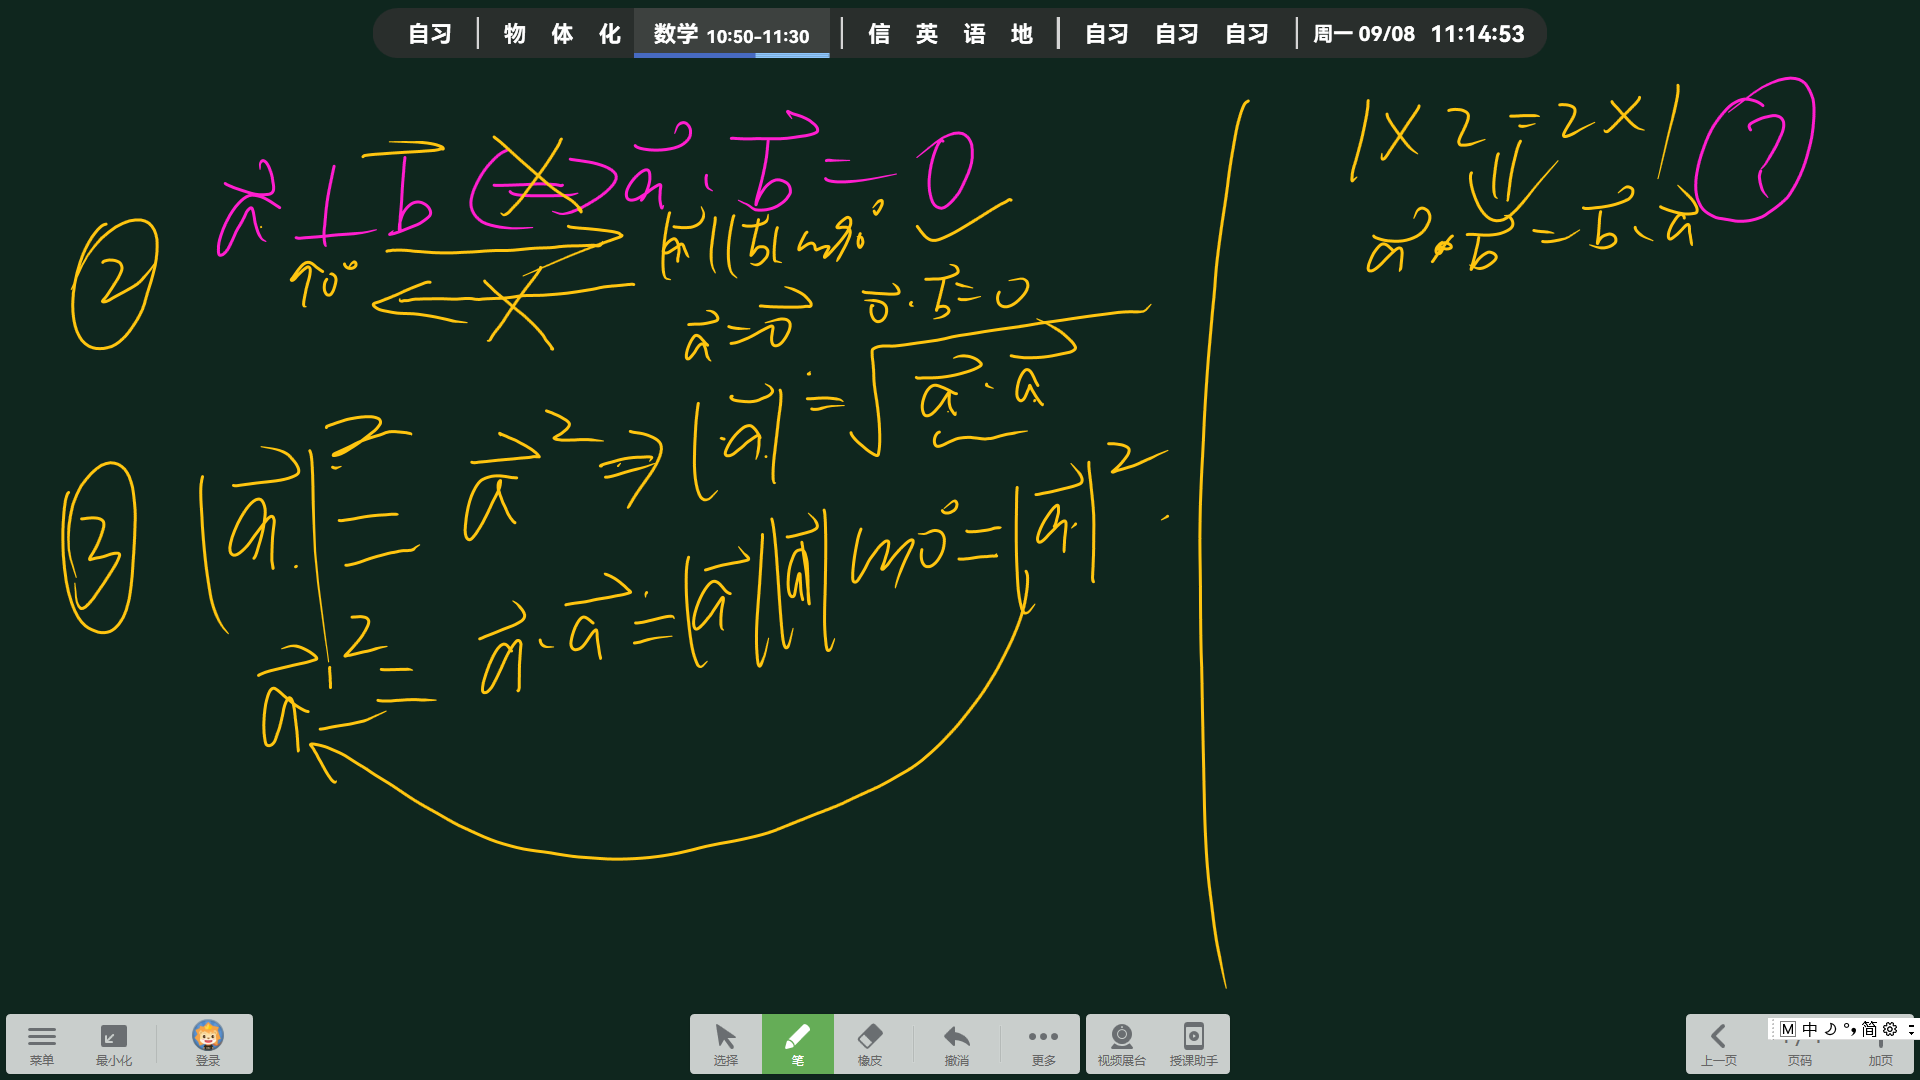 自习 | 物 体 化 数学 10:50-11:30 | 信 英 语 地 | 自习 自习 自习 | 周一 09/08 11:14:53
② a⃗⊥b⃗ ⇔ a⃗·b⃗=0
90° |a⃗||b⃗|cos90°
a⃗=0⃗ 0⃗·b⃗=0
③ |a⃗|²=a⃗²⇒|a⃗|=√a⃗·a⃗
a⃗²=a⃗·a⃗=|a⃗||a⃗|cos0°=|a⃗|²
1×2=2×1 ?
a⃗·b⃗=b⃗·a⃗
菜单 最小化 登录 选择 笔 橡皮 撤消 更多 视频展台 授课助手 上一页 页码 加页
M 中 简